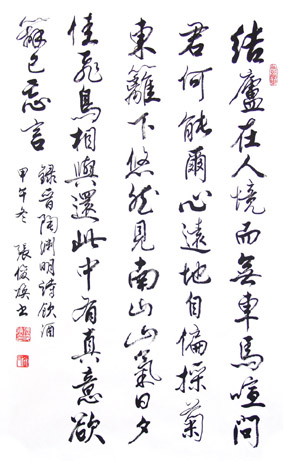 結廬在人境而無車馬喧問
君何能爾心遠地自偏採菊
東籬下悠然見南山山氣日夕
佳飛鳥相與還此中有真意欲
辯已忘言
錄晉陶淵明詩飲酒
甲午冬 張俊煥書